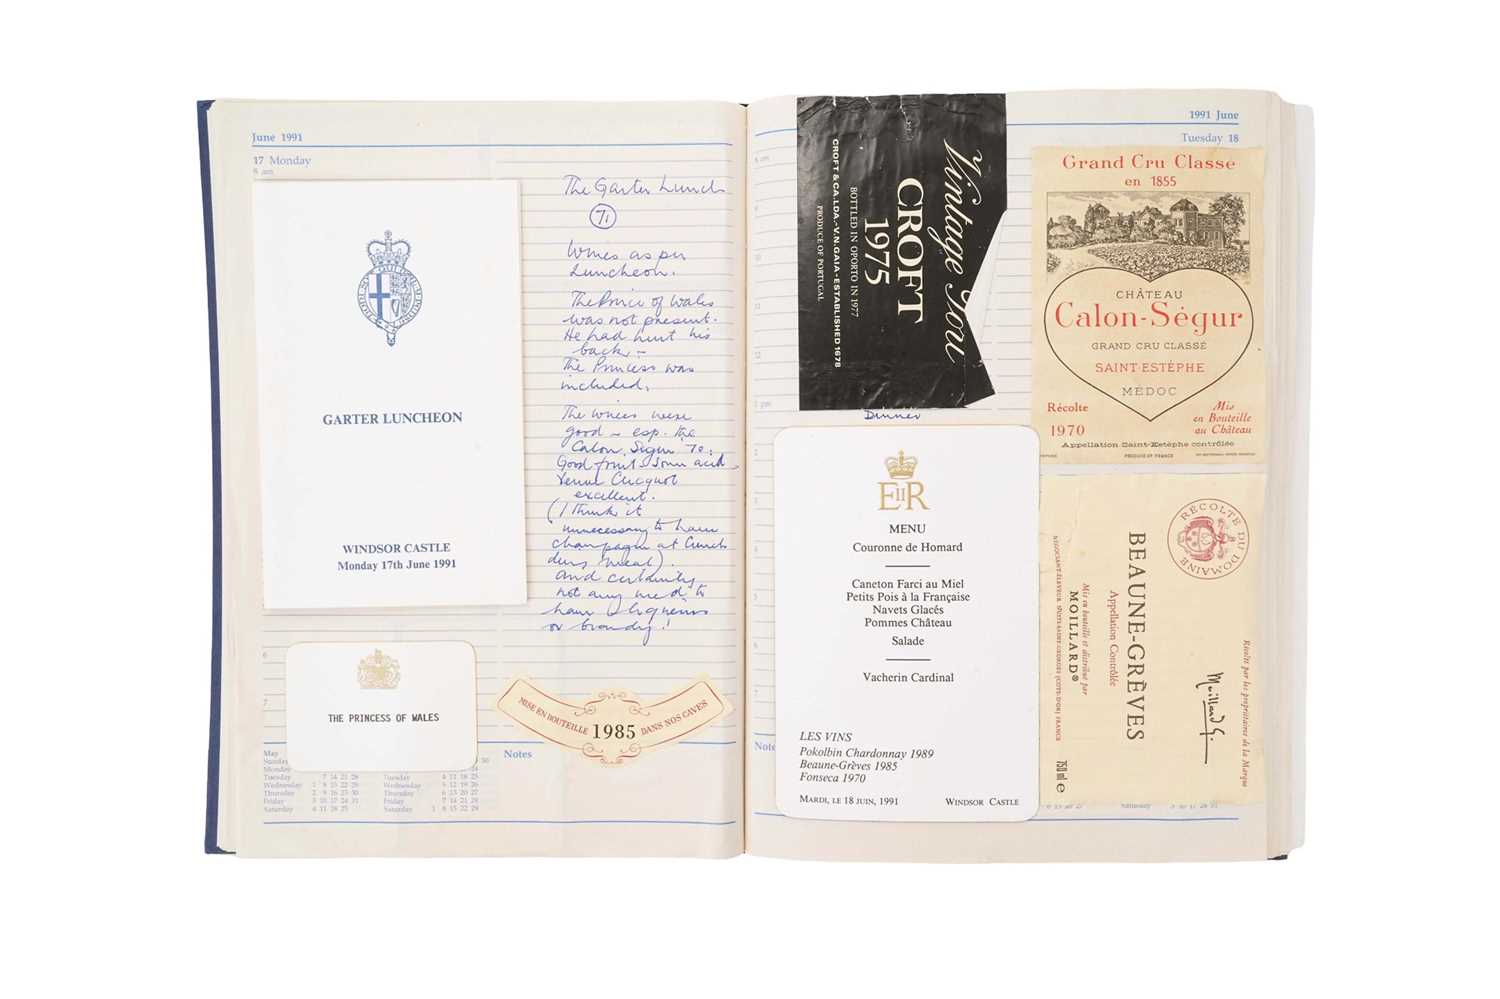 June 1991
17 Monday
GARTER LUNCHEON
WINDSOR CASTLE
Monday 17th June 1991
The Garter Lunch
71
Wines as per
Luncheon.
The Prince of Wales
was not present.
He had hurt his
back –
The Princess was
included.
The wines were
good – esp. the
Calon, Segur 70:
Good fruit & some acid
excellent.
(I think it
unnecessary to have
champagne at Lunch
meal).
and certainly
not any need to
have liqueurs
or brandy!
THE PRINCESS OF WALES
MISE EN BOUTEILLE 1985 DANS NOS CAVES
May
Tuesday 7 14 21 28 Tuesday 4 11 18 25
Wednesday 1 8 15 22 29 Wednesday 5 12 19 26
Thursday 2 9 16 23 30 Thursday 6 13 20 27
Friday 3 10 17 24 31 Friday 7 14 21 28
Saturday 4 11 18 25 Saturday 1 8 15 22 29
Notes
1991 June
Tuesday 18
Vintage
CROFT
1975
BOTTLED IN OPORTO IN 1977
PRODUCE OF PORTUGAL
CROFT & CA. LDA.-V.N. GAIA-ESTABLISHED 1678
Grand Cru Classé
en 1855
CHÂTEAU
Calon-Ségur
GRAND CRU CLASSÉ
SAINT-ESTÈPHE
MÉDOC
Récolte
1970
Mis
en Bouteille
au Château
Appellation Saint-Estèphe contrôlée
PRODUCE OF FRANCE
Dinner
EIIR
MENU
Couronne de Homard
Caneton Farci au Miel
Petits Pois à la Française
Navets Glacés
Pommes Château
Salade
Vacherin Cardinal
LES VINS
Pokolbin Chardonnay 1989
Beaune-Grèves 1985
Fonseca 1970
MARDI, LE 18 JUIN, 1991 WINDSOR CASTLE
RÉCOLTE DU DOMAINE
BEAUNE-GRÈVES
Appellation Contrôlée
Mis en bouteille et distribué par
MOILLARD®
750 ml e
Récolté par les propriétaires de la Marque